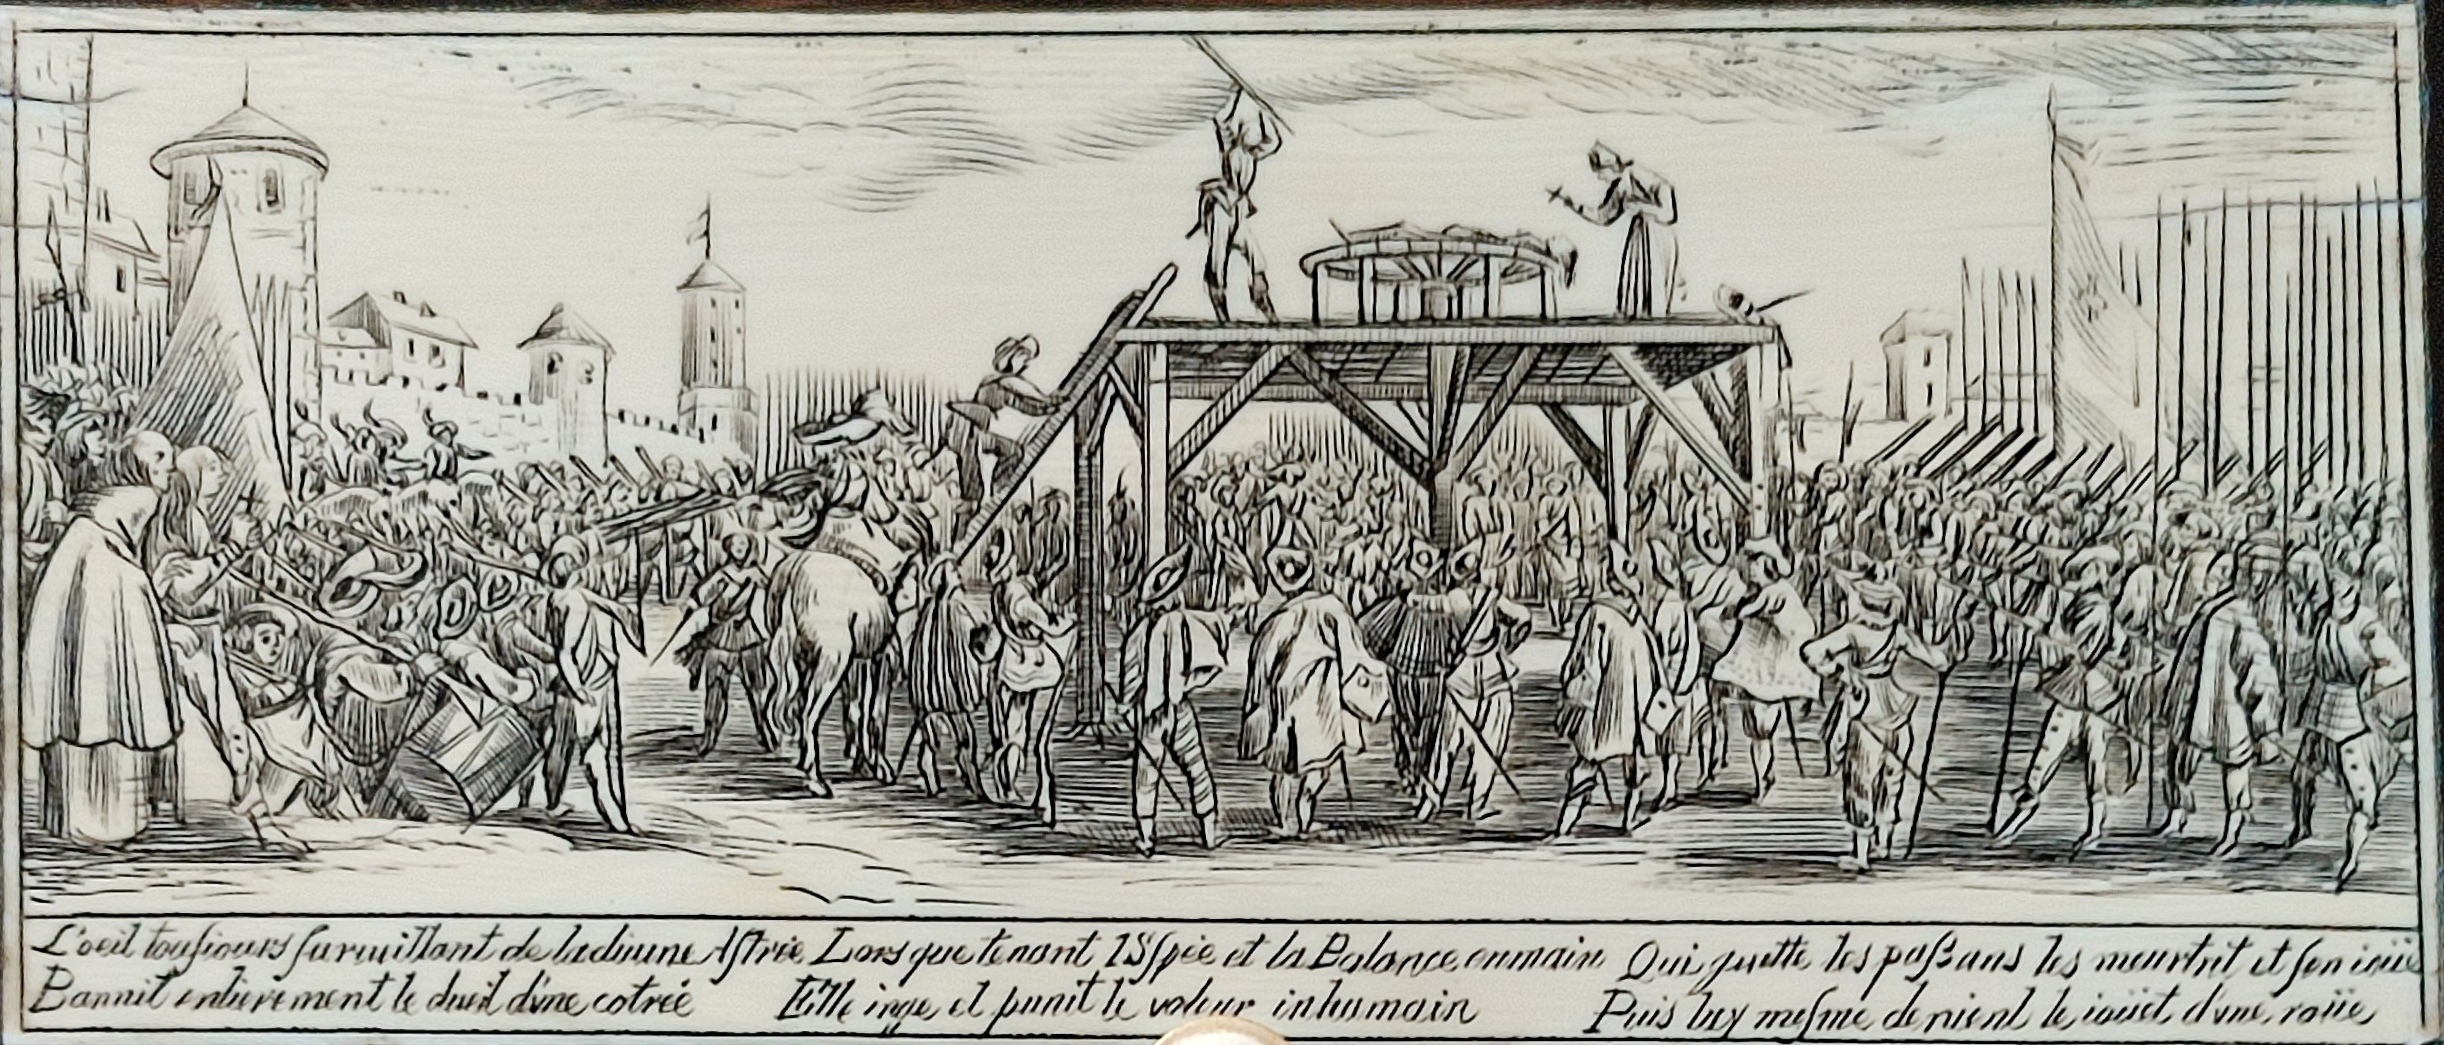 L'oeil tousiours suruillant de ladiuine Astrée
Bannit entierement le dueil d'vne cotrée
Lors que tenant lEspée et la Balance enmain
Eille iuge et punit le voleur inhumain
Qui guette les paßans les meurtrit et sen ioüe
Puis luy mesme deuient le ioüet d'vne roüe